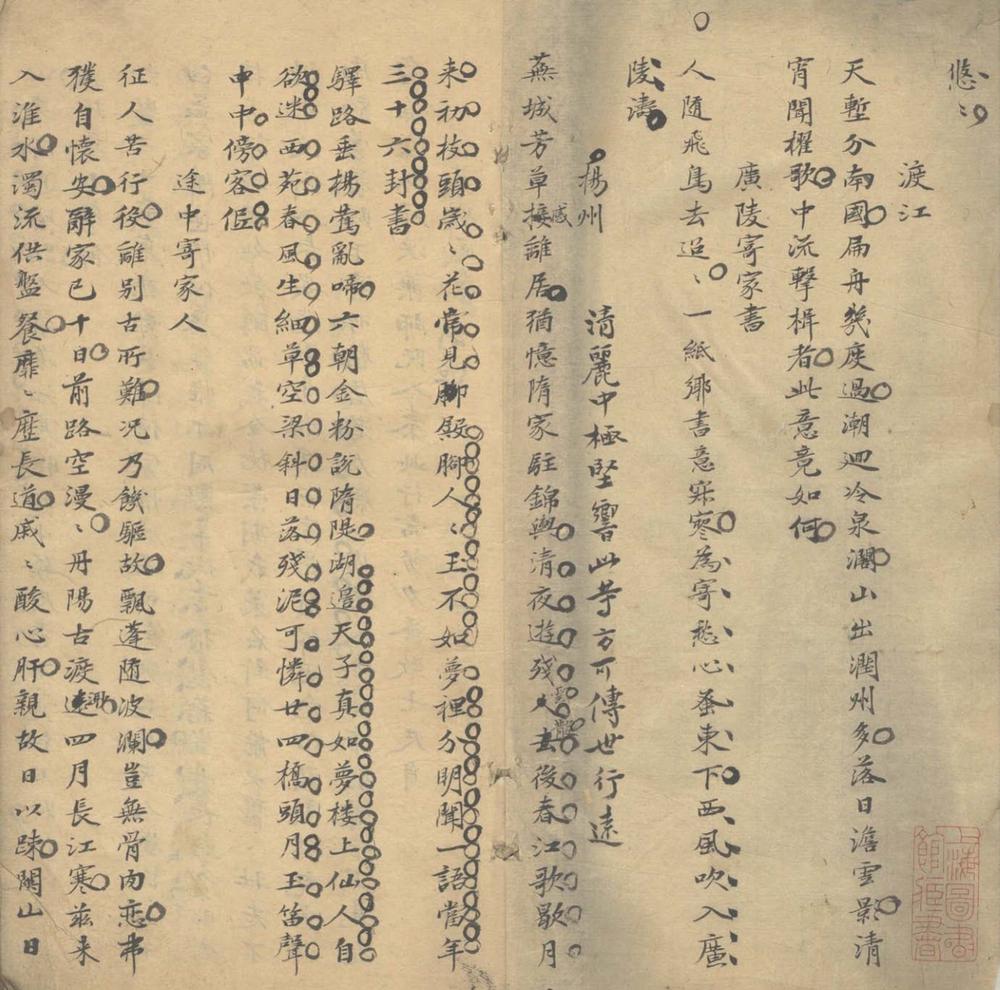 悠〻
渡江
天塹分南國扁舟幾度過潮迴冷泉濶山出潤州多落日澹雲影清
宵聞櫂歌中流擊楫者此意竟如何
廣陵寄家書
人隨飛鳥去迢〻一紙鄉書意寂寥為寄愁心蚤東下西風吹入廣
陵濤
揚州 清麗中極堅響此等方可傳世行遠
感
蕪城芳草接離居猶憶隋家駐錦輿清夜遊殘人去後春江歌歇月
来初枝頭歲〻花常見腳殿腳人〻玉不如夢裡分明聞一語當年
三十六封書
驛路垂楊鶯亂啼六朝金粉說隋隄湖邉天子真如夢楼上仙人自
欲迷西苑春風生細草空梁斜日落殘泥可憐廿四橋頭月玉笛聲
中中傍客低
途中寄家人
征人苦行役離别古所難况乃饑驅故飄蓬随波瀾豈無骨肉恋弗
獲自懷安辭家已十日前路空漫〻丹陽古渡遠四月長江寒茲来
入淮水濁流供盤餐靡〻歷長道戚〻酸心肝親故日以踈關山日
上海圖書館藏書